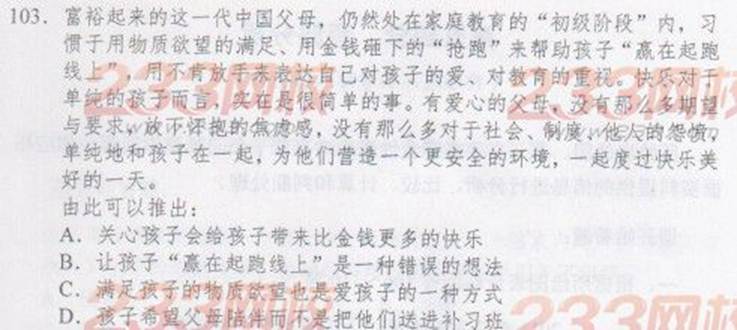 103. 富裕起来的这一代中国父母，仍然处在家庭教育的“初级阶段”内，习
惯于用物质欲望的满足、用金钱砸下的“抢跑”来帮助孩子“赢在起跑
线上”，用不肯放手来表达自己对孩子的爱、对教育的重视。快乐对于
单纯的孩子而言，实在是很简单的事。有爱心的父母，没有那么多期望
与要求，放不下怀抱的焦虑感，没有那么多对于社会、制度、他人的怨愤，
单纯地和孩子在一起，为他们营造一个更安全的环境，一起度过快乐美
好的一天。
由此可以推出：
A．关心孩子会给孩子带来比金钱更多的快乐
B．让孩子“赢在起跑线上”是一种错误的想法
C．满足孩子的物质欲望也是爱孩子的一种方式
D．孩子希望父母陪伴而不是把他们送进补习班
233网校